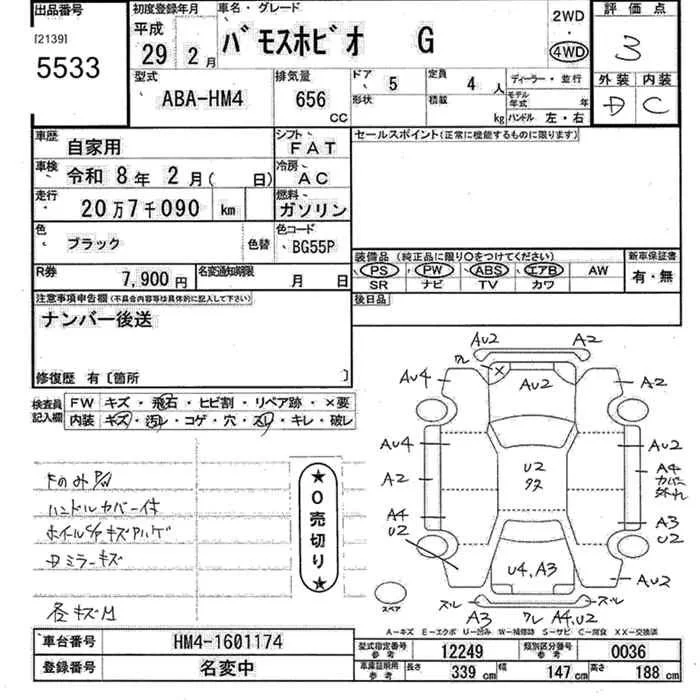 出品番号
[2139]
5533
初度登録年月
平成
29年 2月
車名・グレード
バモスホビオ G
2WD
・
4WD
評価点
3
外装 内装
D C
型式
ABA-HM4
排気量
656 CC
ドア 5
形状
定員 4 人
積載 kg
ディーラー・並行
モデル年式 年
ハンドル 左・右
車歴 自家用
シフト FAT
車検 令和 8年 2月( 日)
冷房 AC
走行 20万7千090 km
燃料 ガソリン
色 ブラック 色替
色コード BG55P
R券 7,900円
名変通知期限 月 日
セールスポイント(正常に機能するものに限ります)
装備品 (純正品に限り○をつけてください)
PS PW ABS エアB AW
SR ナビ TV カワ
新車保証書
有・無
後日品
注意事項申告欄(不具合内容等は具体的に記入して下さい)
ナンバー後送
修復歴 有〔箇所 〕
検査員記入欄
FW キズ・飛石・ヒビ割・リペア跡・×要
内装 キズ・汚レ・コゲ・穴・スレ・キレ・破レ
ハンドルカバー付
ミラーキズ
各キズM
★0売切り★
ワレ AU2 A2
×
AU4 AU2 A2
AU4 AU2
A2 U2 A4
カバー
外れ
A4 A3
U2 U2
U4,A3 AU2
スペア
ズレ ズレ
A3 ワレ A4,U2
A-キズ E-エクボ U-凹み W-補修跡 S-サビ C-腐食 XX-交換済
車台番号 HM4-1601174
登録番号 名変中
型式指定番号 参考 12249
類別区分番号 参考 0036
車庫証明用 参考 長さ 339 cm 幅 147 cm 高さ 188 cm